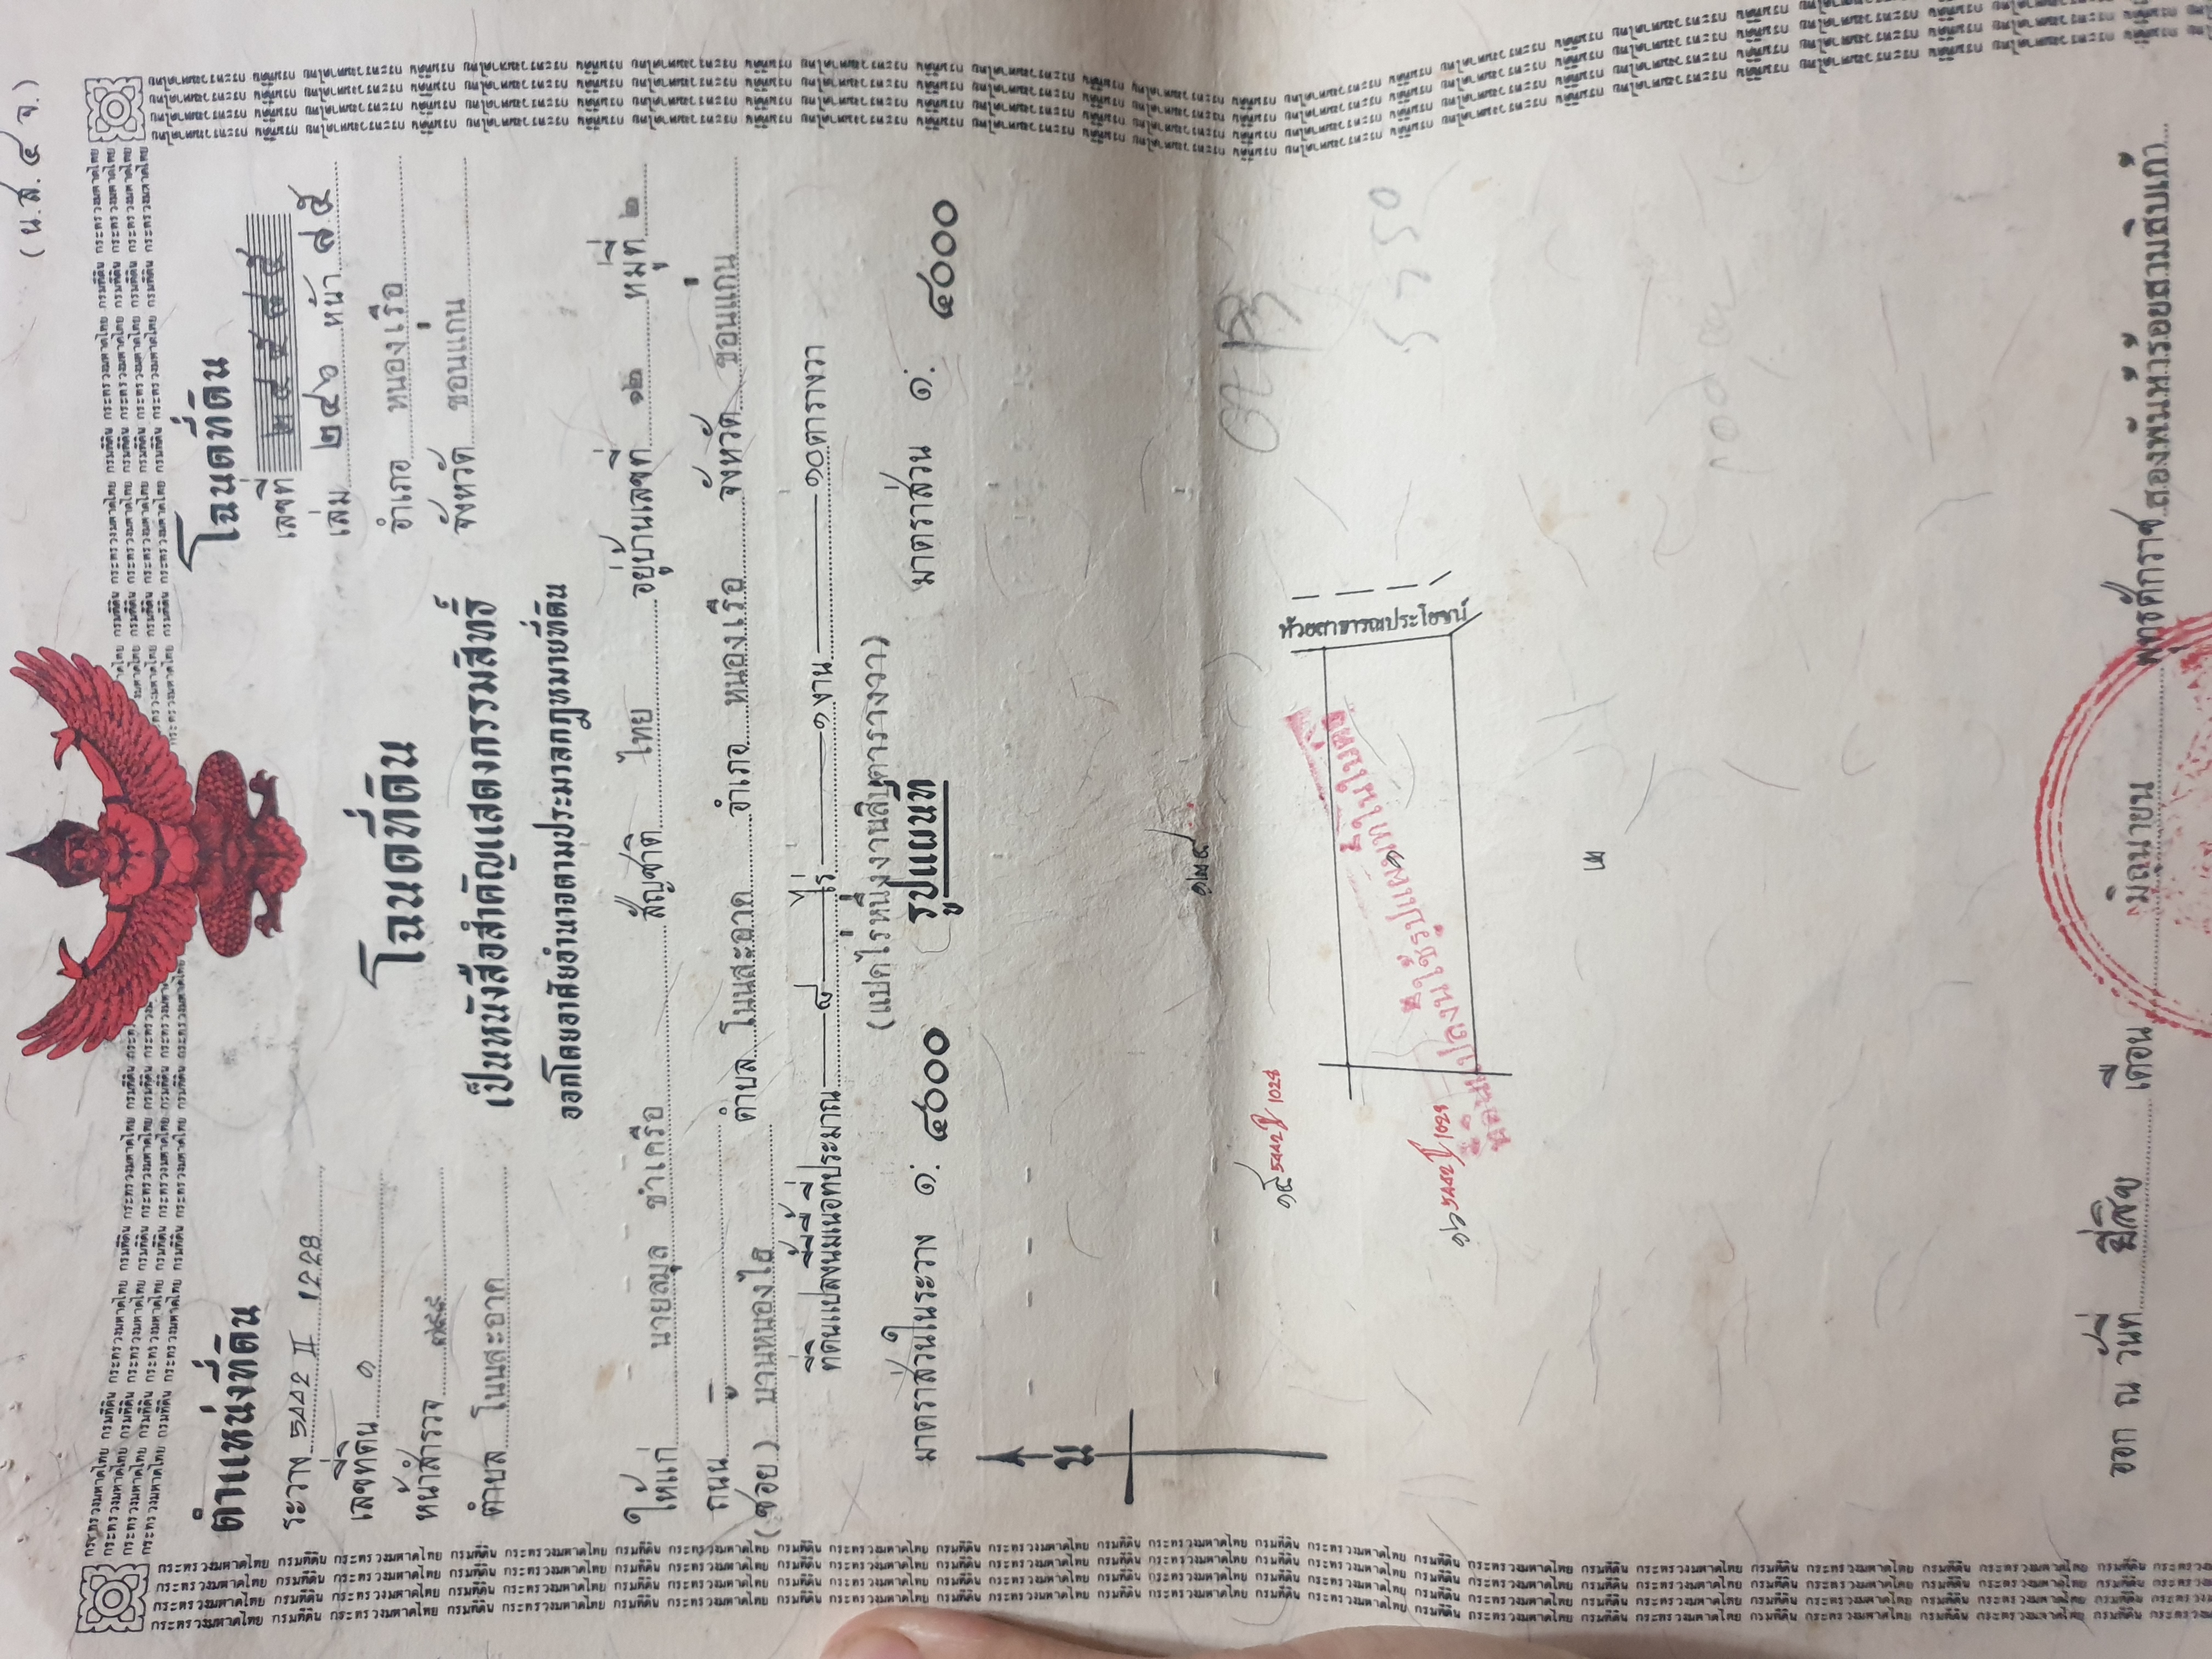 (น.ส. ๔ จ.)
ตำแหน่งที่ดิน
ระวาง 5442 II 1228
เลขที่ดิน ๑
หน้าสำรวจ
ตำบล โนนสะอาด
โฉนดที่ดิน
เลขที่ ๒๔๕๘๕
เล่ม ๒๔๖ หน้า ๘๕
อำเภอ หนองเรือ
จังหวัด ขอนแก่น
โฉนดที่ดิน
เป็นหนังสือสำคัญแสดงกรรมสิทธิ์
ออกโดยอาศัยอำนาจตามประมวลกฎหมายที่ดิน
ให้แก่ นายสมุล ชำเครือ สัญชาติ ไทย อยู่บ้านเลขที่ ๑๒ หมู่ที่ ๒
ถนน ตำบล โนนสะอาด อำเภอ หนองเรือ จังหวัด ขอนแก่น
(ซอย) บ้านหนองไฮ
ที่ดินแปลงนี้มีเนื้อที่ประมาณ ๘ ไร่ ๑ งาน ๑๐ ตารางวา
(แปดไร่หนึ่งงานสิบตารางวา)
มาตราส่วนในระวาง ๑: ๔๐๐๐ รูปแผนที่ มาตราส่วน ๑: ๔๐๐๐
น
5750
ห้วยสาธารณประโยชน์
๑๕ 5442 II 1028
๑
๑๖ 5442 II 1028
๒
ที่ดินแปลงนี้ใช้รูปแผนที่ในใบแทน
ออก ณ วันที่ ยี่สิบ เดือน มิถุนายน พุทธศักราช สองพันห้าร้อยสามสิบเก้า